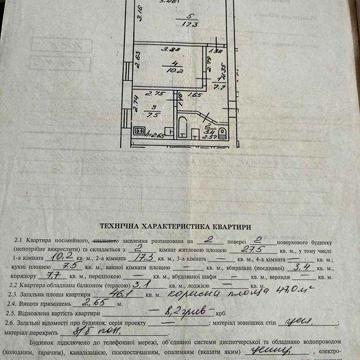 3.16
5
17.3
2.63
3.88
4
10.2
1.38
2.79
1
7.7
2.75
1.65
2.74
3
7.5
3.4
ТЕХНІЧНА ХАРАКТЕРИСТИКА КВАРТИРИ
2.1 Квартира посімейного, спільного заселення розташована на 2 поверсі 2 поверхового будинку
(непотрібне викреслити) та складається з 2 кімнат житловою площею 27.5 кв. м., у тому числі
1-а кімната 10.2 кв. м., 2-а кімната 17.3 кв. м., 3-а кімната — кв. м., 4-а кімната — кв. м.,
кухні площею 7.5 кв. м., ванної кімнати площею — кв. м., вбиральні (поєднаної) 3.4 кв. м.,
коридору 7.7 кв. м., передпокою — кв. м., вбудованої шафи — кв. м.,
2.2 Квартира обладнана балконом (терасою) 3.1 кв. м., лоджією — кв. м.
2.3 Загальна площа квартири 46.1 кв. м. корисна площа
2.4 Висота приміщень 2.65 м.
2.5 Відновна вартість квартири — крб.
2.6 Загальні відомості про будинок, серія проекту — матеріал зовнішніх стін
матеріал перекриття
Будинок підключено до телефонної мережі, об'єднаної системи диспетчерської та обладнано водопроводом
(холодним, гарячим), каналізацією, газопостачанням, опаленням (вказати яким)